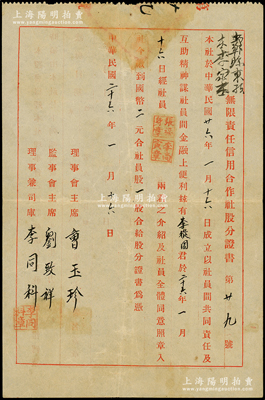 上海阳明拍卖
無限責任信用合作社股分證書 第廿九號
本社於中華民國廿六年一月十六日成立以社員間共同責任及
互助精神謀社員間金融上便利茲有李發國君於二十六年一月
十六日經社員
兩君之介紹及社員全體同意照章入
到國幣二元合社員股一股合給股分證書為憑
中華民國二十六年一月十六日
理事會主席 曹玉珍
監事會主席 劉致祥
理事兼司庫 李同科
上海阳明拍卖